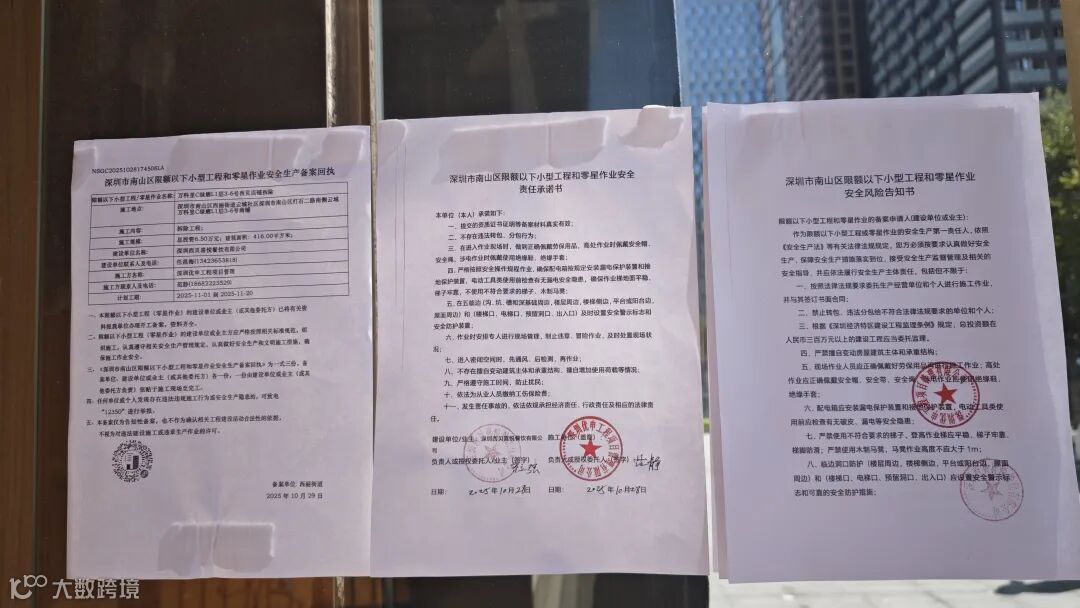 NSGC20251028174508LA
深圳市南山区限额以下小型工程和零星作业安全生产备案回执
限额以下小型工程/零星作业名称:
万科里C级樾L1层3-6号西贝店铺拆除
施工地点:
深圳市南山区西丽街道云城社区深圳市南山区打石二路南侧云城
万科里C级樾L1层3-6号商铺
施工内容:
拆除工程;
施工规模:
总投资6.50万元;建筑面积:416.00平方米;
建设单位名称:
深圳西贝喜悦餐饮有限公司
建设单位联系人及电话:
施工方名称:
深圳优申工程项目管理
施工方联系人及电话:
范静(18682223529)
计划工期:
2025-11-01 至 2025-11-20
一、本限额以下小型工程(零星作业)的建设单位或业主(或其他委托方)已将有关资
料报我单位办理开工备案,资料齐全。
二、限额以下小型工程(零星作业)的建设单位或业主方应严格按照相关标准规范,组
织施工,认真遵守相关安全生产管理规定,认真做好安全生产和文明施工措施,确
保施工作业安全。
三、《深圳市南山区限额以下小型工程和零星作业安全生产备案回执》为一式三份,备
案单位、建设单位或业主(或其他委托方)各一份,一份由建设单位或业主(或其
他委托方负责)张贴于施工现场至完工。
四、任何单位或个人发现存在违法违规施工行为或安全生产隐患的,可致电
“12350”进行举报。
五、本备案仅为告知性备案,也不作为确认相关工程建设活动合法性的依据,
不视为对违法建设施工或违章生产作业的许可。
备案单位: 西丽街道
2025 年 10 月 29 日
深圳市南山区限额以下小型工程和零星作业安全
责任承诺书
本单位(本人)承诺如下:
一、提交的资质证书证明等备案材料真实有效;
二、不存在违法转包、分包行为;
三、在进入作业现场时,做到正确佩戴劳保用品,高处作业时佩戴安全帽、
安全绳,涉电作业时佩戴使用绝缘鞋,绝缘手套;
四、严格按照安全操作规程作业,确保配电箱按规定安装漏电保护装置和接
地保护装置,电动工具类使用前检查有无漏电安全隐患,确保作业梯地面平稳、
梯子牢靠,不使用不符合要求的梯子、木制马凳;
五、在五临边(沟、坑、槽和深基础周边,楼层周边,楼梯侧边,平台或阳台边,
屋面周边)和(楼梯口、电梯口、预留洞口、出入口)及时设置安全警示标志和
安全防护装置;
六、作业时安排专人进行现场管理,制止违章、冒险作业,及时处置现场状
况;
七、进入密闭空间时,先通风,后检测,再作业;
八、不存在擅自变动主体和承重结构、擅自增加使用荷载等情况;
九、严格遵守施工时间,防止扰民;
十、依法为从业人员缴纳工伤保险费;
十一、发生责任事故的,依法依规承担经济责任、行政责任及相应的法律责
任。
建设单位/业主: 深圳西贝喜悦餐饮有限公
司
施工单位(盖章)
负责人或授权委托人/业主(签字)
负责人或授权委托人(签字)
日期: 2025年10月28日
日期: 2025年10月28日
深圳市南山区限额以下小型工程和零星作业
安全风险告知书
限额以下小型工程和零星作业的备案申请人(建设单位或业主):
作为限额以下小型工程或零星作业的安全生产第一责任人,依照
《安全生产法》等有关法律法规规定,即方必须按要求认真做好安全
生产,保障安全生产措施落实到位,接受安全生产监督管理及相关的
安全指导,并应依法履行安全生产主体责任,包括但不限于:
一、按照法律法规要求委托生产经营单位和个人进行施工作业,
并与其签订书面合同;
二、禁止转包、违法分包给不符合法律法规要求的单位和个人;
三、根据《深圳经济特区建设工程监理条例》规定,总投资额在
人民币三百万元以上的建设工程应当委托监理。
四、严禁擅自变动房屋建筑主体和承重结构;
五、现场作业人员应正确佩戴好劳保用品
作业应正确佩戴安全帽、安全带、安全绳
绝缘手套;
六、配电箱应安装漏电保护装置和接地保护装置,电动工具类使
用前应检查有无破皮、漏电等安全隐患;
七、严禁使用不符合要求的梯子,登高作业梯应平稳、梯子牢靠、
梯脚防滑;严禁使用木制马凳,马凳作业高度不应大于1m;
八、临边洞口防护(楼层周边,楼梯侧边,平台或阳台边,屋面
周边)和(楼梯口、电梯口、预留洞口、出入口)应设置安全警示标
志和可靠的安全防护措施;
大数跨境